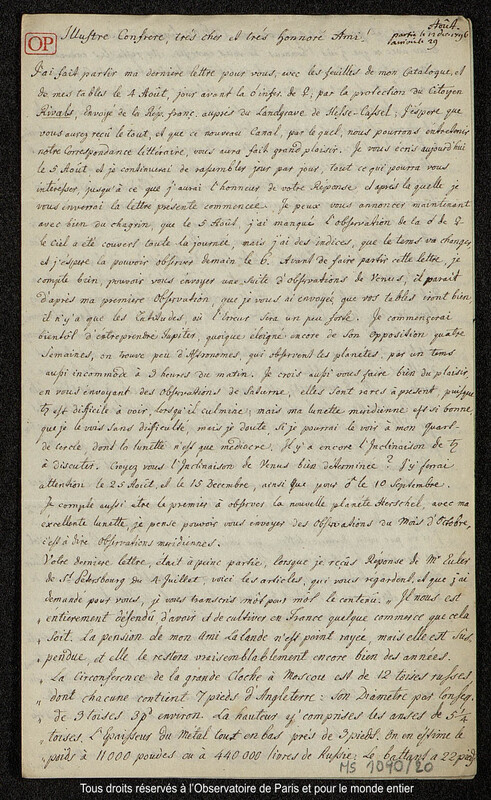 Août.
partie le 12 dec. 1796
OP
Illustre Confrere, très cher et très honnoré Ami!
J'ai fait partir ma derniere lettre pour vous, avec les feuilles de mon Catalogue, et
de mes tables le 4 Août, jour avant la ☌ infer. de ♀, par la protection du Citoyen
Rivals, Envoyé de la Rép. franç. auprès du Landgrave de Hesse-Cassel. J'espere que
vous aurez reçû le tout, et que ce nouveau Canal, par le quel, nous pourrons entretenir
notre Correspondance litteraire, vous aura fait grand plaisir. Je vous écris aujourd'hui
le 5 Août, et je continuerai de rassembler jour par jour, tout ce qui pourra vous
interesser, jusqu'à ce que j'aurai l'honneur de votre Réponse, d'après la quelle je
vous enverrai la lettre présente commencée. Je peux vous annoncer maintenant
avec bien du chagrin, que le 5 Août, j'ai manqué l'observation de la ☌ de ♀
le Ciel a été couvert toute la journée, mais j'ai des indices, que le tems va changer
et j'espere la pouvoir observer demain le 6. Avant de faire partir cette lettre, je
compte bien, pouvoir vous envoyer une suite d'observations de Venus, il parait
d'après ma premiere Observation, que je vous ai envoyée, que vos tables iront bien
il n'y a que les Latitudes, où l'erreur sera un peu forte. Je commencerai
bientôt d'entreprendre Jupiter, quoique éloigné encore de son opposition quatre
Semaines, on trouve peu d'Astronomes, qui observent les planetes, par un tems
aussi incommode à 3 heures du matin. Je crois aussi vous faire bien du plaisir
en vous envoyant des Observations de Saturne, elles sont rares à présent, puisque
♄ est difficile à voir, lorsqu'il culmine; mais ma lunette méridienne est si bonne
que je le vois sans difficulté, mais je doute si je pourrai le voir à mon Quart-
de-cercle, dont la lunette n'est que mediocre. Il y a encore l'Inclinaison de ♄
à discuter. Croyez vous l'Inclinaison de Venus bien determinée? J'y ferai
attention le 25 Août, et le 15 Decembre, ainsi que pour ♂ le 10 Septembre.
Je compte aussi être le premier à observer la nouvelle planéte Herschel, avec ma
excellente lunette, je pense pouvoir vous envoyer des Observations du Mois d'Octobre,
c'est à dire Observations méridiennes.
Votre derniere lettre, était à peine partie, lorsque je reçûs Réponse de Mr Euler
de St. Petersbourg du 4 Juillet, voici les articles, qui vous regardent, et que j'ai
demandé pour vous, je vous transcris môt pour môt le contenu. „Il nous est
„entierement défendu d'avoir et de cultiver en France quelque commerce que cela
„soit. La pension de mon Ami La Lande n'est point rayée, mais elle est sus-
„pendue, et elle le restera vraisemblablement encore bien des années.
„La Circonférence de la grande Cloche à Moscou est de 12 toises russes,
„dont chacune contient 7 pieds d'Angleterre: son Diametre par conseq.
„de 3 toises 3p environ. La hauteur y comprises les anses de 5 1/4
„toises. L'Epaisseur du Metal tout en bas près de 3 pieds. On en estime le
„poids à 11000 poudes ou à 440 000 livres de Russie: Le battans a 22 pieds
MS 1090/20
Tous droits réservés à l'Observatoire de Paris et pour le monde entier